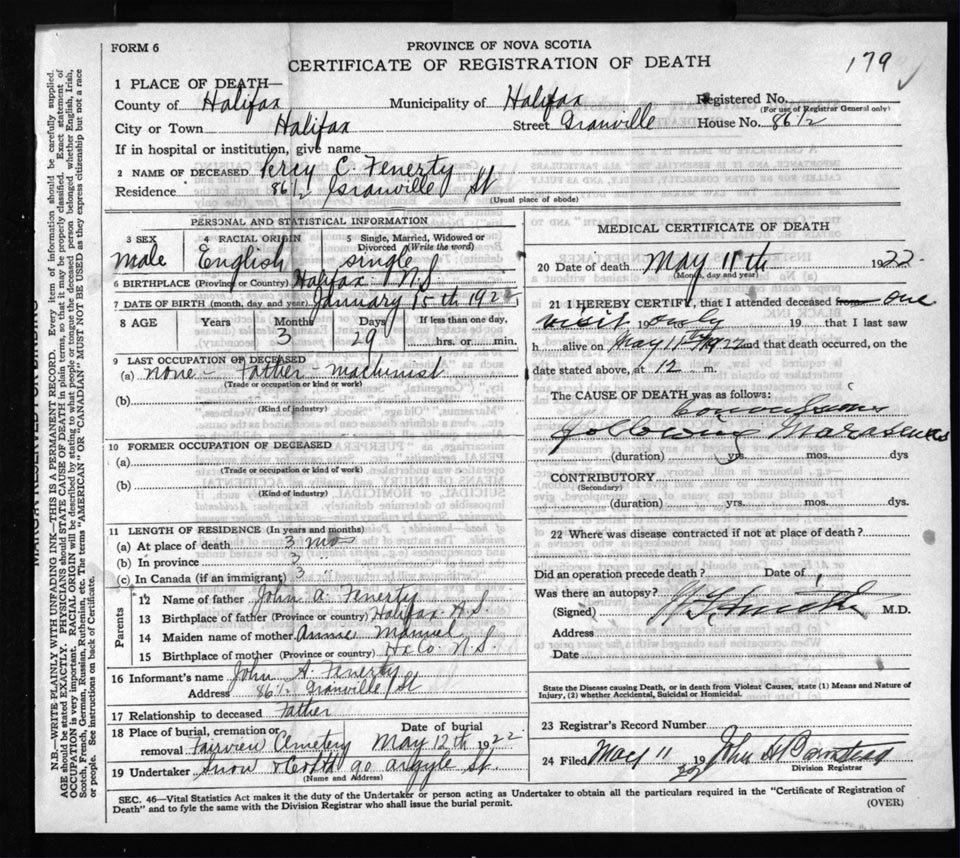 FORM 6
PROVINCE OF NOVA SCOTIA
CERTIFICATE OF REGISTRATION OF DEATH
179
1 PLACE OF DEATH—
County of Halifax Municipality of Halifax Registered No.
(For use of Registrar General only)
City or Town Halifax Street Granville House No. 86½
If in hospital or institution, give name
2 NAME OF DECEASED Percy C. Fenerty
Residence 86½ Granville St
(Usual place of abode)
PERSONAL AND STATISTICAL INFORMATION
3 SEX 4 RACIAL ORIGIN 5 Single, Married, Widowed or Divorced (Write the word)
male English single
6 BIRTHPLACE (Province or Country) Halifax N.S.
7 DATE OF BIRTH (month, day and year) January 15th 1922
8 AGE Years Months Days If less than one day,
3 29 hrs. or min.
9 LAST OCCUPATION OF DECEASED
(a) none - Father - machinist
(Trade or occupation or kind or work)
(b)
(Kind of industry)
10 FORMER OCCUPATION OF DECEASED
(a)
(Trade or occupation or kind of work)
(b)
(Kind of industry)
11 LENGTH OF RESIDENCE (In years and months)
(a) At place of death 3 mo
(b) In province 3 "
(c) In Canada (if an immigrant) 3 "
Parents
12 Name of father John A. Fenerty
13 Birthplace of father (Province or country) Halifax N.S.
14 Maiden name of mother Annie Manuel
15 Birthplace of mother (Province or country) Hx Co. N.S.
16 Informant's name John A. Fenerty
Address 86½ Granville St
17 Relationship to deceased Father
18 Place of burial, cremation or removal Fairview Cemetery Date of burial May 12th 1922
19 Undertaker Snow & Co Ltd 90 Argyle St.
(Name and Address)
MEDICAL CERTIFICATE OF DEATH
20 Date of death May 11th 1922
(Month, day and year)
21 I HEREBY CERTIFY, that I attended deceased from one
visit only 19 that I last saw
h alive on May 11 1922 and that death occurred, on
the date stated above, at 12 m.
The CAUSE OF DEATH was as follows:
Convulsions
following Marasmus
(duration) yrs. mos. dys
CONTRIBUTORY
(Secondary)
(duration) yrs. mos. dys.
22 Where was disease contracted if not at place of death?
Did an operation precede death? Date of
Was there an autopsy?
(Signed) M.D.
Address
Date
State the Disease causing Death, or in death from Violent Causes, state (1) Means and Nature of
Injury, (2) whether Accidental, Suicidal or Homicidal.
23 Registrar's Record Number
24 Filed May 11 19 22 John
Division Registrar
SEC. 46—Vital Statistics Act makes it the duty of the Undertaker or person acting as Undertaker to obtain all the particulars required in the "Certificate of Registration of
Death" and to fyle the same with the Division Registrar who shall issue the burial permit.
(OVER)
MARGIN RESERVED FOR BINDING
N.B.—WRITE PLAINLY WITH UNFADING INK—THIS IS A PERMANENT RECORD. Every item of information should be carefully supplied.
AGE should be stated EXACTLY. PHYSICIANS should STATE CAUSE OF DEATH in plain terms, so that it may be properly classified. Exact statement of
OCCUPATION is very important. RACIAL ORIGIN will be described by stating to what people or tongue the deceased person belonged whether English, Irish,
Scotch, French, German, Russian, Ruthenian, etc. The terms "AMERICAN" OR "CANADIAN" MUST NOT BE USED as they express citizenship but not a race
or people. See instructions on back of Certificate.